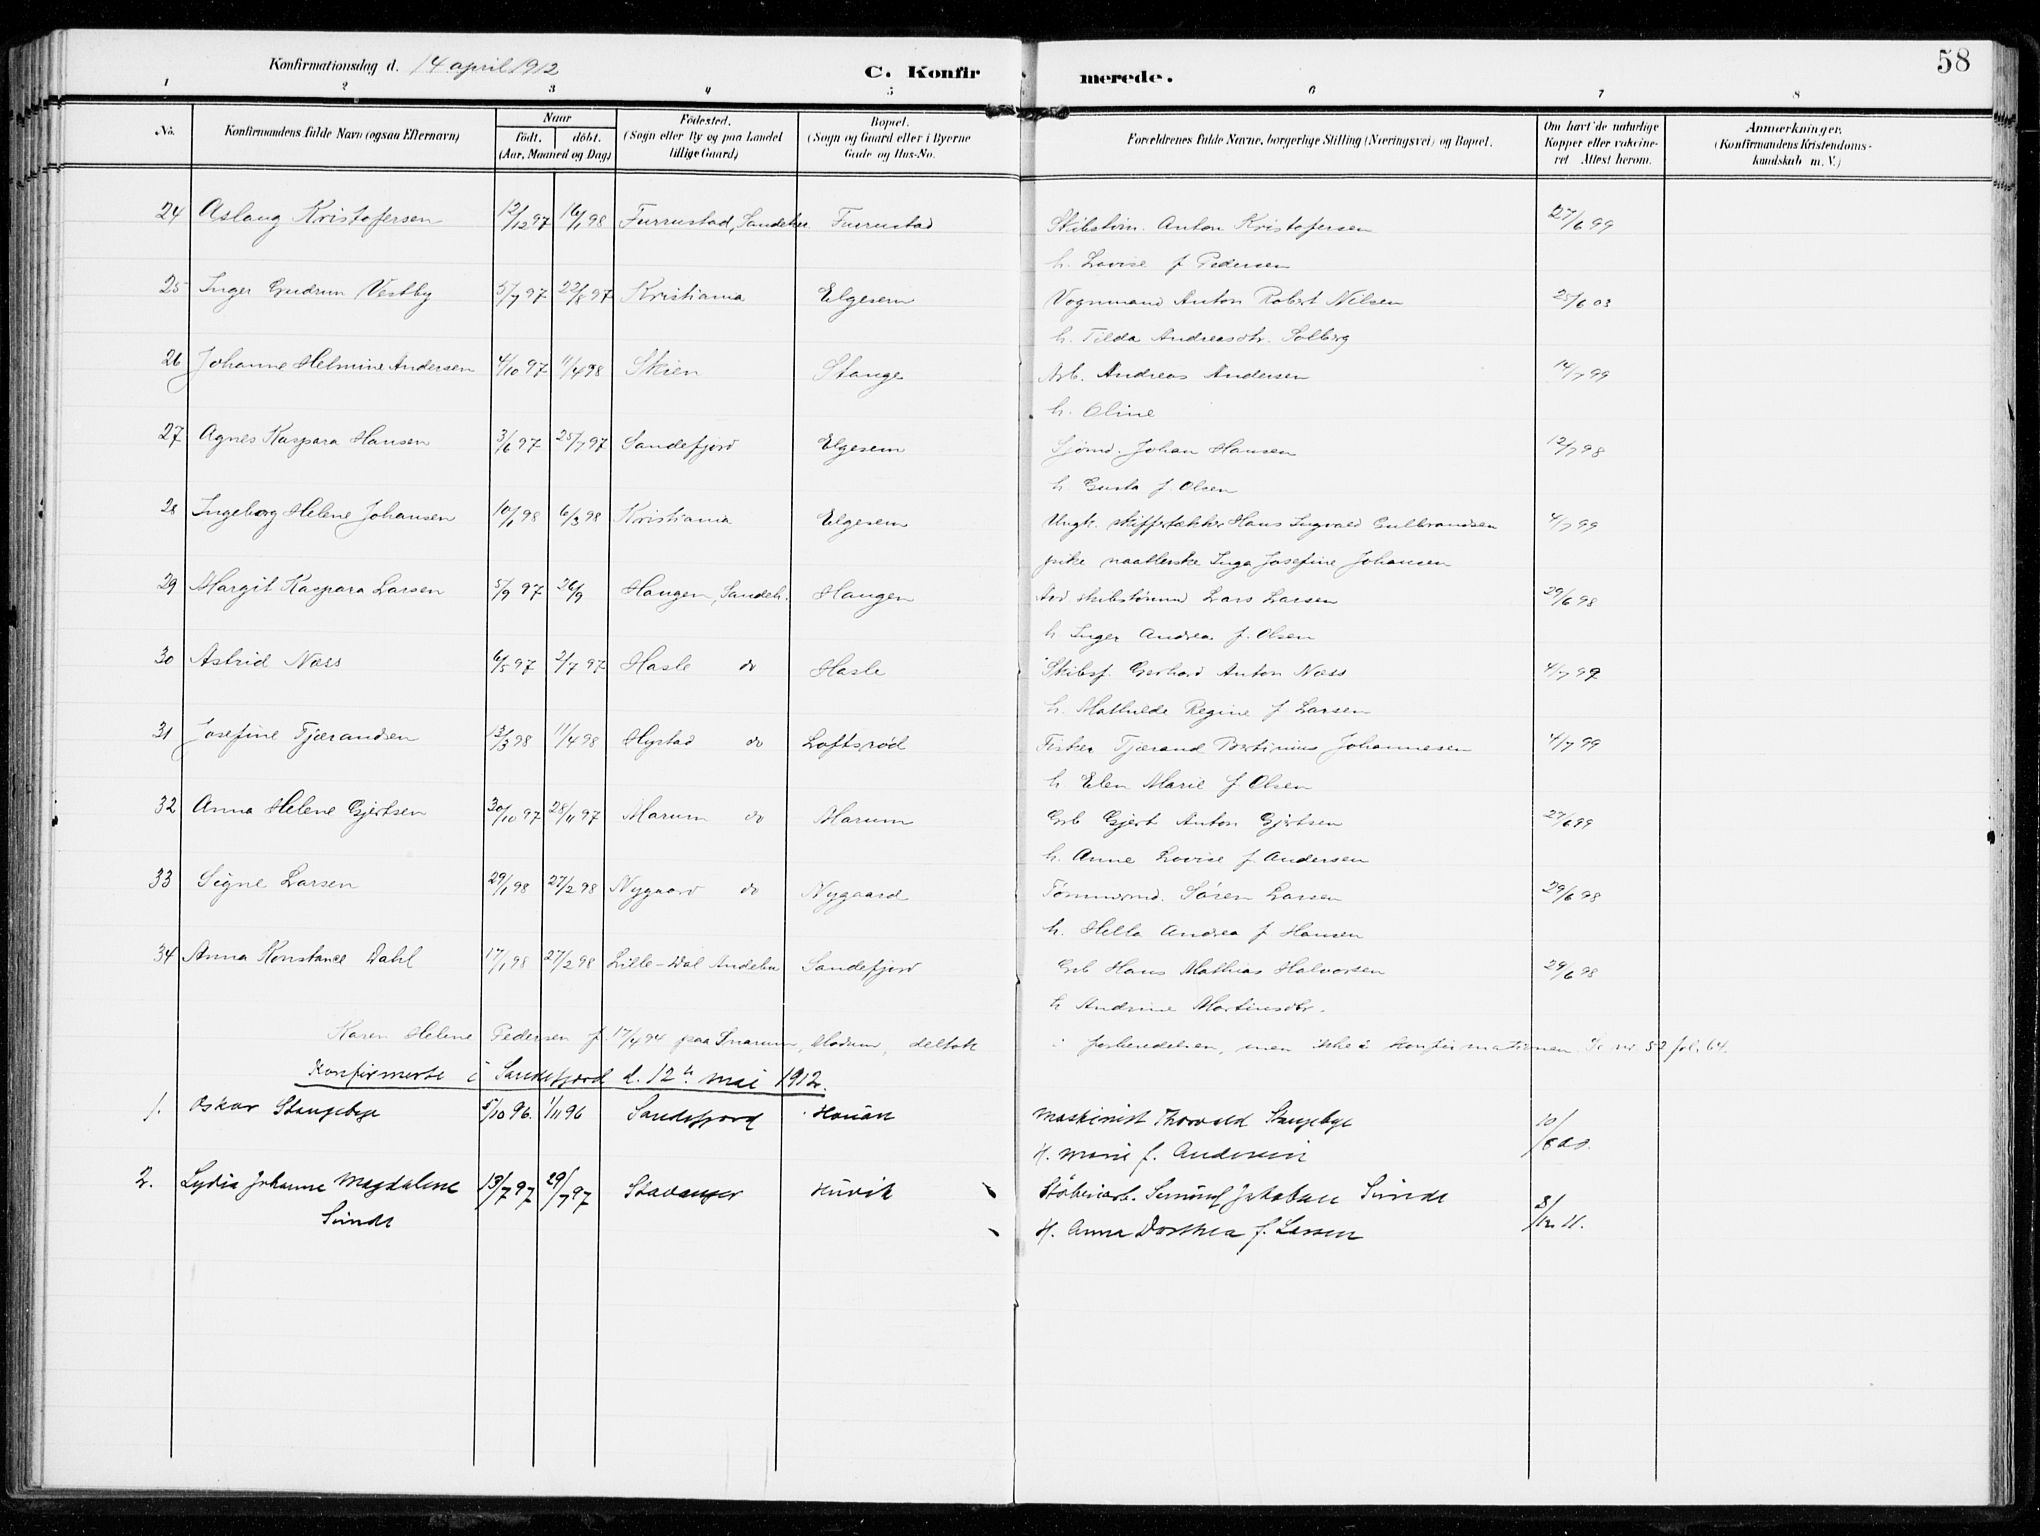 58
Konfirmationsdag d. 14 april 1912
C. Konfirmerede.
1 2 3 4 5 6 7 8
No. Konfirmandens fulde Navn (ogsaa Efternavn) Naar födt. döbt. (Aar, Maaned og Dag) Födested. (Sogn eller By og paa Landet tillige Gaard) Bopæl. (Sogn og Gaard eller i Byerne Gade og Hus-No. Forældrenes fulde Navne, borgerlige Stilling (Næringsvei) og Bopæl. Om havt de naturlige Kopper eller vakcineret Attest herom. Anmærkninger. (Konfirmandens Kristendomskundskab m. V.)
24 Aslaug Kristofersen 12/12 97 16/1 98 Furrustad, Sandeher Furustad Skibstøm. Anton Kristofersen 27/6 99
h. Lovise f Pedersen
25 Inger Gudrun Vestby 5/7 97 22/8 97 Kristiania Elgesem Vognmand Anton Robert Nilsen 25/6 03
h. Tilda Andreasdtr. Solberg
26 Johanne Helmine Andersen 4/10 97 11/4 98 Skien Stange Arb. Andreas Andersen 14/7 99
h. Oline
27 Agnes Kaspara Hansen 3/6 97 25/7 97 Sandefjord Elgesem Sjømd. Johan Hansen 12/7 98
h. Gusta f. Olsen
28 Ingeborg Helene Johansen 10/1 98 6/3 98 Kristiania Elgesem Ungk. skiffertækker Hans Ingvald Gulbrandsen 4/7 99
pike naatlerske Inga Josefine Johansen
29 Margit Kaspara Larsen 5/9 97 26/9 Haugen, Sandeh. Haugen skibstømmd Lars Larsen 29/6 98
h Inger Andrea f. Olsen
30 Astrid Næss 6/5 97 2/7 97 Hasle do Hasle Skibsf. Gerhard Anton Næss 4/7 99
h. Mathilde Regine f Larsen
31 Josefine Tjærandsen 13/3 98 11/4 98 Hystad do Loftsrød Fisker Tjærand Bertinius Johannesen 4/7 99
h Elen Marie f Olsen
32 Anna Helene Gjertsen 30/10 97 28/11 97 Marum do Marum Grb Gjert Anton Gjertsen 27/6 99
h. Anne Lovise f. Andersen
33 Signe Larsen 29/1 98 27/2 98 Nygaard do Nygaard Tømmermd. Søren Larsen 29/6 98
h. Hella Andrea f Hansen
34 Anna Konstance Dahl 17/1 98 27/2 98 Lille-Dal Andebu Sandefjord Grb Hans Mathias Halvorsen 29/6 98
h Andrine Martinsdtr.
Karen Helene Pedersen f. 17/4 94 paa Snarum, Modum, deltok i forberedelsen, men ikke i konfirmationen. Se nr 52 fol. 64.
Konfirmerte i Sandefjord d. 12te mai 1912.
1. Oskar Stangebye 5/10 96. 1/11 96 Sandefjord Hauan Maskinist Thorvald Stangebye 10/
H. Marie f. Andersen
2. Lydia Johanne Magdalene 13/7 97 29/7 97 Stavanger Huvik Støberiarb. Simund Jakobsen Sunde 8/12 11.
Sunde H. Anna Dorthea f. Larsen